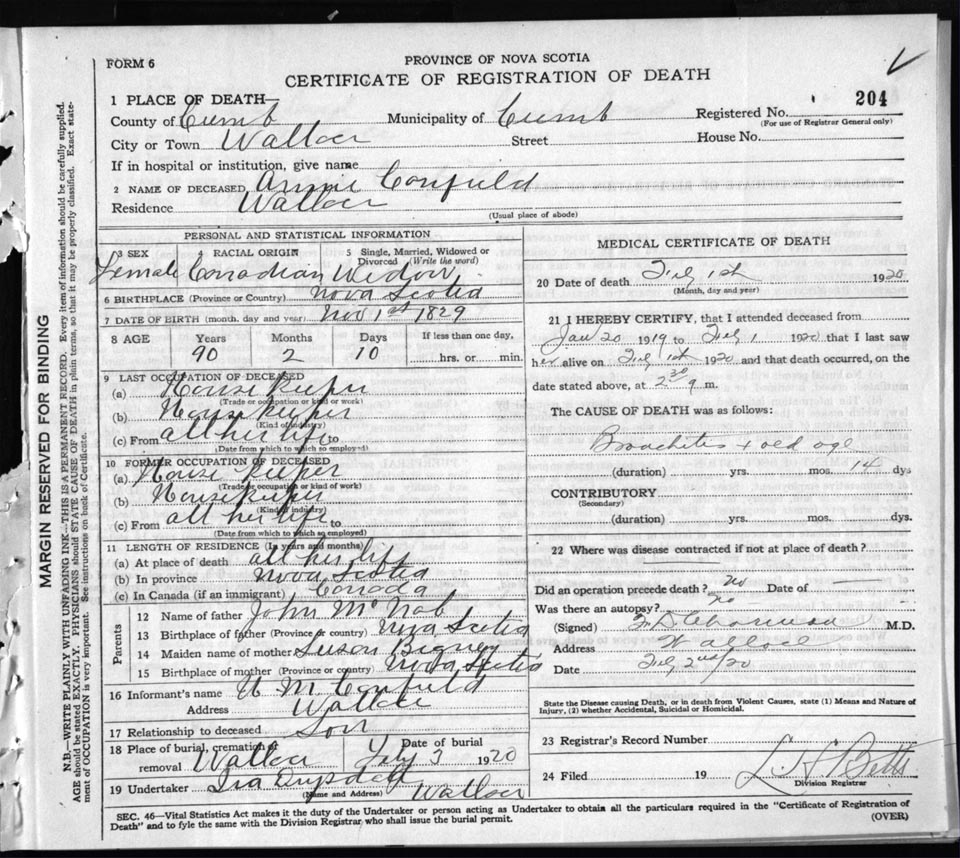 FORM 6
PROVINCE OF NOVA SCOTIA
CERTIFICATE OF REGISTRATION OF DEATH
1 PLACE OF DEATH—
County of Cumb Municipality of Cumb Registered No. 204
(For use of Registrar General only)
City or Town Wallace Street House No.
If in hospital or institution, give name
2 NAME OF DECEASED Annie Canfield
Residence Wallace
(Usual place of abode)
PERSONAL AND STATISTICAL INFORMATION
3 SEX RACIAL ORIGIN 5 Single, Married, Widowed or Divorced (Write the word)
Female Canadian Widow
6 BIRTHPLACE (Province or Country) Nova Scotia
7 DATE OF BIRTH (month, day and year) Nov 1st 1829
8 AGE Years Months Days If less than one day,
90 2 10 hrs. or min.
9 LAST OCCUPATION OF DECEASED
(a) House keeper
(Trade or occupation or kind of work)
(b) House keeper
(Kind of industry)
(c) From all her life to
(Date from which to which so employed)
10 FORMER OCCUPATION OF DECEASED
(a) House keeper
(Trade or occupation or kind of work)
(b) House keeper
(Kind of industry)
(c) From all her life to
(Date from which to which so employed)
11 LENGTH OF RESIDENCE (In years and months)
(a) At place of death all her life
(b) In province Nova Scotia
(c) In Canada (if an immigrant) Canada
Parents
12 Name of father John McNab
13 Birthplace of father (Province or country) Nova Scotia
14 Maiden name of mother Susan Bigney
15 Birthplace of mother (Province or country) Nova Scotia
16 Informant's name M Canfield
Address Wallace
17 Relationship to deceased Son
18 Place of burial, cremation or removal Wallace Date of burial Feby 3 1920
19 Undertaker Ira Drysdale
(Name and Address) Wallace
MEDICAL CERTIFICATE OF DEATH
20 Date of death Feby 1st 1920
(Month, day and year)
21 I HEREBY CERTIFY, that I attended deceased from
Jan 20 1919 to Feby 1 1920 that I last saw
her alive on Feby 1st 1920 and that death occurred, on the
date stated above, at 2 30 m.
The CAUSE OF DEATH was as follows:
Bronchitis + old age
(duration) yrs. mos. 14 dys
CONTRIBUTORY
(Secondary)
(duration) yrs. mos. dys.
22 Where was disease contracted if not at place of death?
Did an operation precede death? no Date of
Was there an autopsy? no
(Signed) M.D.
Address Wallace
Date Feby 2nd/20
State the Disease causing Death, or in death from Violent Causes, state (1) Means and Nature of Injury, (2) whether Accidental, Suicidal or Homicidal.
23 Registrar's Record Number
24 Filed 19 Betts
Division Registrar
SEC. 46—Vital Statistics Act makes it the duty of the Undertaker or person acting as Undertaker to obtain all the particulars required in the "Certificate of Registration of
Death" and to fyle the same with the Division Registrar who shall issue the burial permit. (OVER)
MARGIN RESERVED FOR BINDING
N.B.—WRITE PLAINLY WITH UNFADING INK—THIS IS A PERMANENT RECORD. Every item of information should be carefully supplied.
AGE should be stated EXACTLY. PHYSICIANS should STATE CAUSE OF DEATH in plain terms, so that it may be properly classified. Exact state-
ment of OCCUPATION is very important. See instructions on back of Certificate.